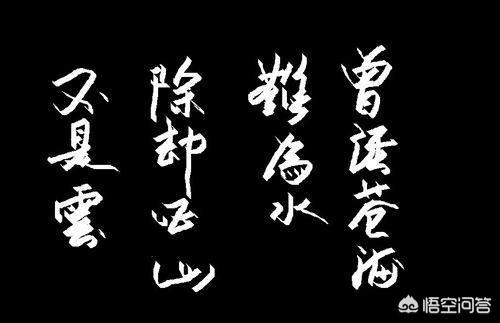 曾经苍海
難為水
除却巫山
不是雲
悟空问答